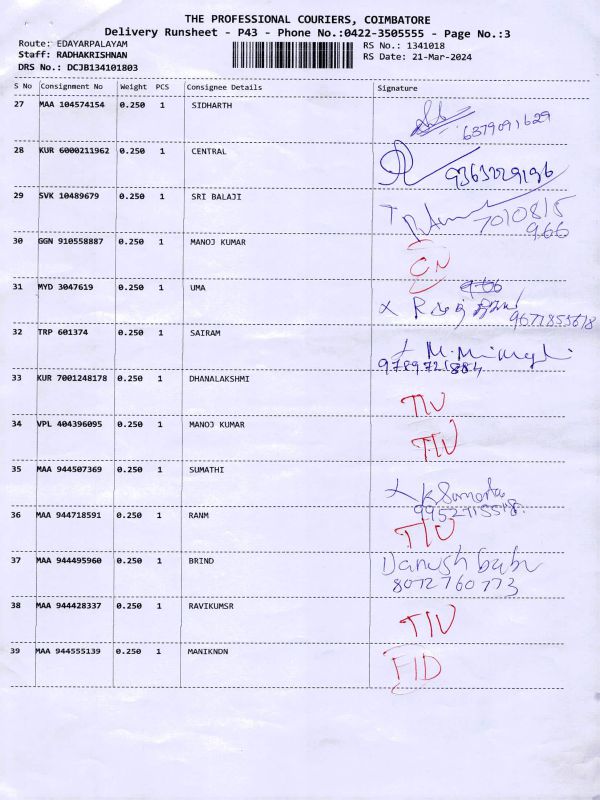 THE PROFESSIONAL COURIERS, COIMBATORE
Delivery Runsheet - P43 - Phone No.:0422-3505555 - Page No.:3
Route: EDAYARPALAYAM RS No.: 1341018
Staff: RADHAKRISHNAN RS Date: 21-Mar-2024
DRS No.: DCJB134101803
S No Consignment No Weight PCS Consignee Details Signature
27 MAA 104574154 0.250 1 SIDHARTH
6379091629
28 KUR 6000211962 0.250 1 CENTRAL
9363229196
29 SVK 10489679 0.250 1 SRI BALAJI
7010815
966
30 GGN 910558887 0.250 1 MANOJ KUMAR
CN
31 MYD 3047619 0.250 1 UMA
9677855678
32 TRP 601374 0.250 1 SAIRAM
9789721884
33 KUR 7001248178 0.250 1 DHANALAKSHMI
TIU
34 VPL 404396095 0.250 1 MANOJ KUMAR
TIU
35 MAA 944507369 0.250 1 SUMATHI
36 MAA 944718591 0.250 1 RANM
TIU
37 MAA 944495960 0.250 1 BRIND
Danush babu
8072760773
38 MAA 944428337 0.250 1 RAVIKUMSR
TIU
39 MAA 944555139 0.250 1 MANIKNDN
FID